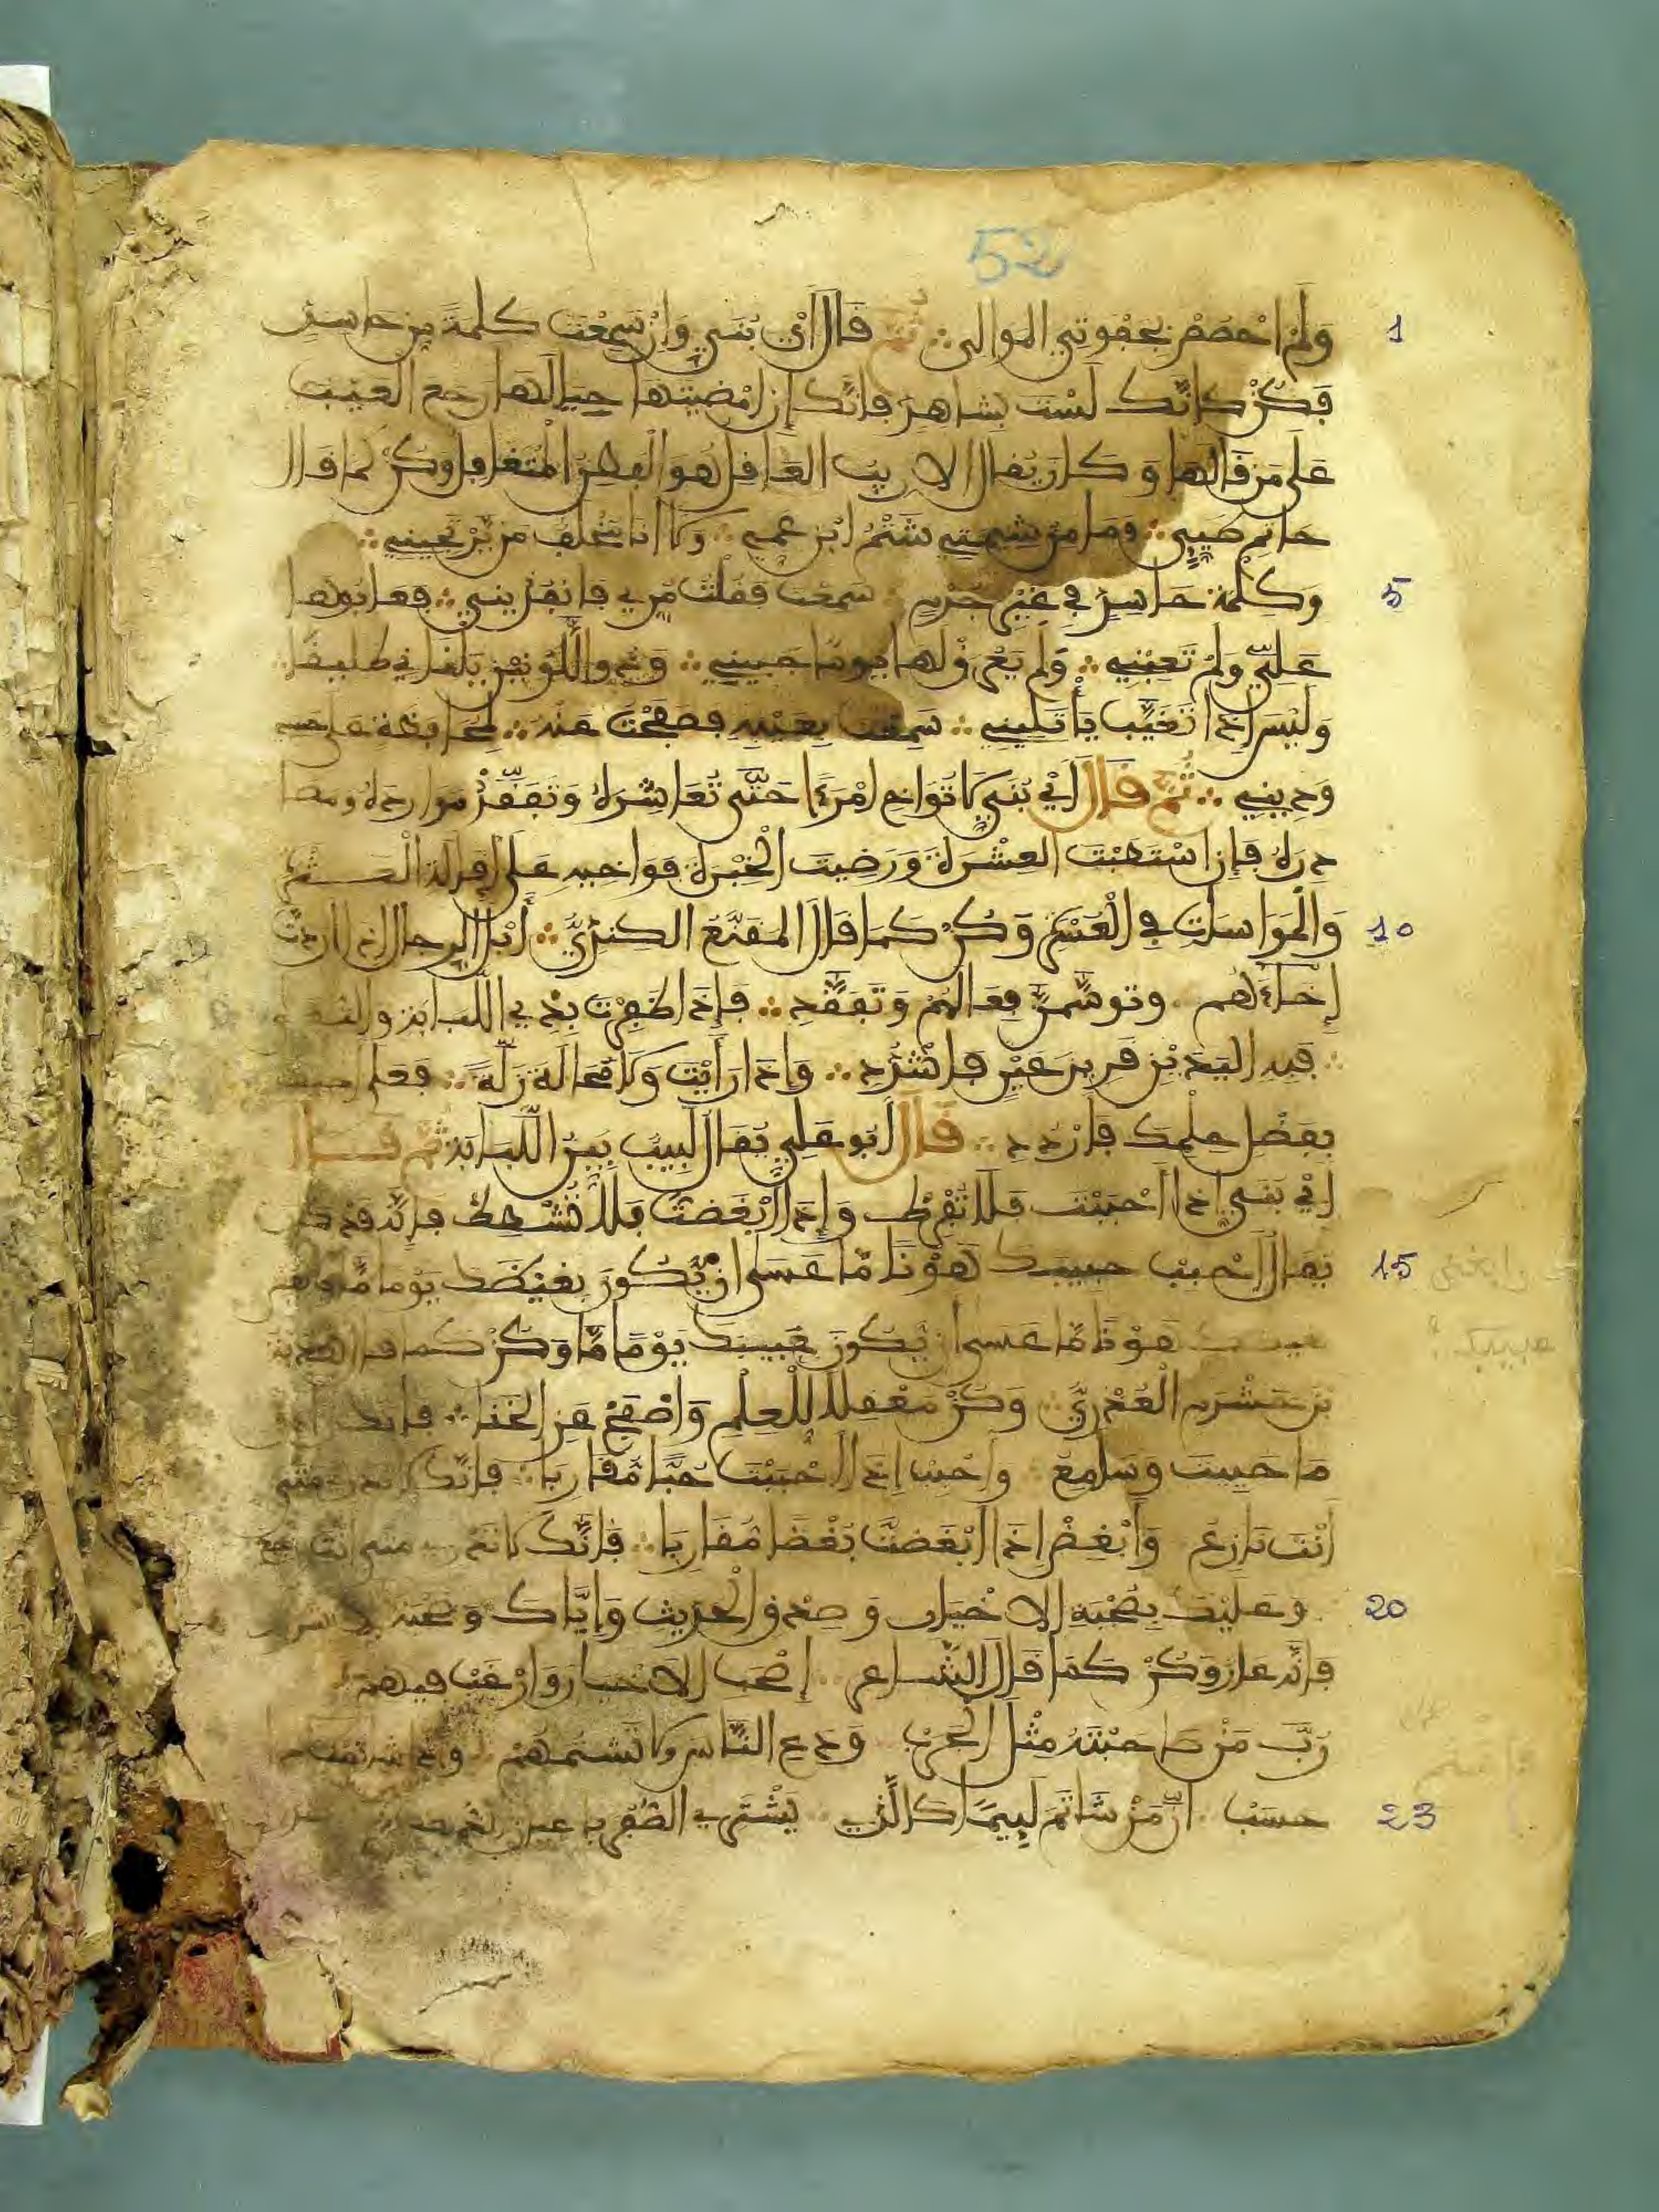 52
1 وَلَمْ اخْصُصْ بجَفْوَتِي الموالى ∴ ثم قَالَ أيْ بُنَيّ وَإِنْ سَمِعْتَ كلمَةً مِن حاسِدٍ
فَكُنْ كانَّكَ لَسْتَ بشاهِدٍ فانَّكَ إن امْضَيْتها حِيَالَهَا رَجع العَيْبُ
عَلَى مَن قَالَهَا وَكان يُقَالُ الارِيبُ العَاقِل هُوَ الفطِنُ المُتَغَافِل وكُنْ كما قَال
حاتِم طَيِّيٍ ∴ وَمَا مِنْ شِيمَتِي شَتْمُ ابْنِ عَمِّي ∴ وَلا انا مُخْلِفٌ مَن يَرْتَجِينِي ∴
5 وَكَلِمَة حَاسِدٍ فِي غَيْرِ جُرْمٍ سَمِعْت فَقُلْتُ مُرِّي فَانْفُذِينِي ∴ فعَابُوهَا
عَلَيَّ وَلَمْ تَعِبْنِي ∴ وَلَمْ يَعْرَقْ لها يوما جَبِينِي ∴ وَذو اللَّوْنَيْنِ يَلْقَانِي طَلِيقًا ∴
وَلَيْسَ إذا تَغَيَّبَ يَأْتَلِينِي ∴ سَمِعْت بِعَيْبِهِ فصَفَحْتُ عَنْهُ ∴ مُحَافَظَة على حسبي
وَدِينِي ∴ ثُمَّ قَالَ أيْ بُنَيّ لا تُوَاخِ امْرَءًا حَتَّى تُعَاشِرَهُ وَتَفَقَّدْ مَوَارِدَهُ ومصا
دِرَهُ فإِن اسْتَطَبْتَ العِشْرَةَ وَرَضِيتَ الْخِبْرَةَ فَوَاخِيهِ عَلَى إقالَةِ الْعَثْرَة
10 وَالْمُوَاسَاتِ فِي الْعُسْرَةِ وَكُنْ كَمَا قَالَ المُقَنَّعُ الكِنْدِيُّ ∴ أُبْلُ الرِجالَ إذا اردْتَ
إِخَاءَهُم وتوسَّمَنَّ فِعَالَهُمْ وَتَفَقَّدِ ∴ فَإِذَا ظَفِرْتَ بِذِي اللَّبَابَةِ والتقى
∴ فَبِهِ اليَدَيْنِ قَرِيرَ عَيْنٍ فَاشْدُدِ ∴ وَإِذَا رَأَيْتَ وَلا مَحَالَةَ زَلَّةً ∴ فَعلى أخيك
بِفَضْلِ حِلْمِكَ فَارْدُدِ ∴ قَال أبُو عَلِيٍّ يُقَالُ لَبِيبٌ بَيِّنُ اللَّبَابَةِ ثُمَّ قَال
ايْ بُنَيّ إذا أَحْبَبْتَ فَلا تُفْرِطْ وَإِذَا أَبْغَضْتَ فَلا تُشْطِطْ فَإِنَّهُ قَد كان
15 يُقَالُ أَحْبِبْ حبيبكَ هَوْنًا مَّا عَسَى أنْ يَّكُونَ بغيضَكَ يَوْمًا مَّا وابغض
بغيضك هَوْنًا مَّا عَسى أن يّكون حَبِيبَكَ يَوْمًا مَّا وَكُنْ كما قال هدبة
وابغض
حبيبك ؟
بن خَشْرَمٍ الْعُذْرِيُّ وَكُنْ مَعْقِلا لِلْحِلْمِ وَاصْفَحْ عَنِ الْخَنَا ∴ فإنك
مَا حَيِيتَ وَسَامِعٌ ∴ وَأَحْبِبْ إذَا أَحْبَبْتَ حُبًّا مُّقَارِبًا ∴ فَانَّكَ لا تدري متى
أَنْتَ نَازِعٌ وَأَبْغِضْ إذَا أَبْغَضْتَ بُغْضًا مُّقَارِبًا ∴ فَإِنَّكَ لا تدري متى انت راجع
20 وعَلَيْكَ بِصُحْبَةِ الاخْيَارِ وَصِدْقِ الْحَدِيثِ وَإِيَّاكَ وَصُحْبَة الاشرار
فَإِنَّهُ عَار وَكُنْ كَمَا قَالَ الشَّاعر إِصْحَبِ الاخْيَارَ وَارْغَبْ فيهم
رُبَّ مَنْ صَاحَبْتَهُ مِثْلُ الجَرَبْ وَدَعِ النَّاسَ ولا تَشْتُمْهُمُ وإذا شاتمت
23 حسبْ إنَّ مَنْ شَاتَمَ لَئِيمًا كالّذي يَشْتَرِي الصُّفْرَ بأعيان الذهب